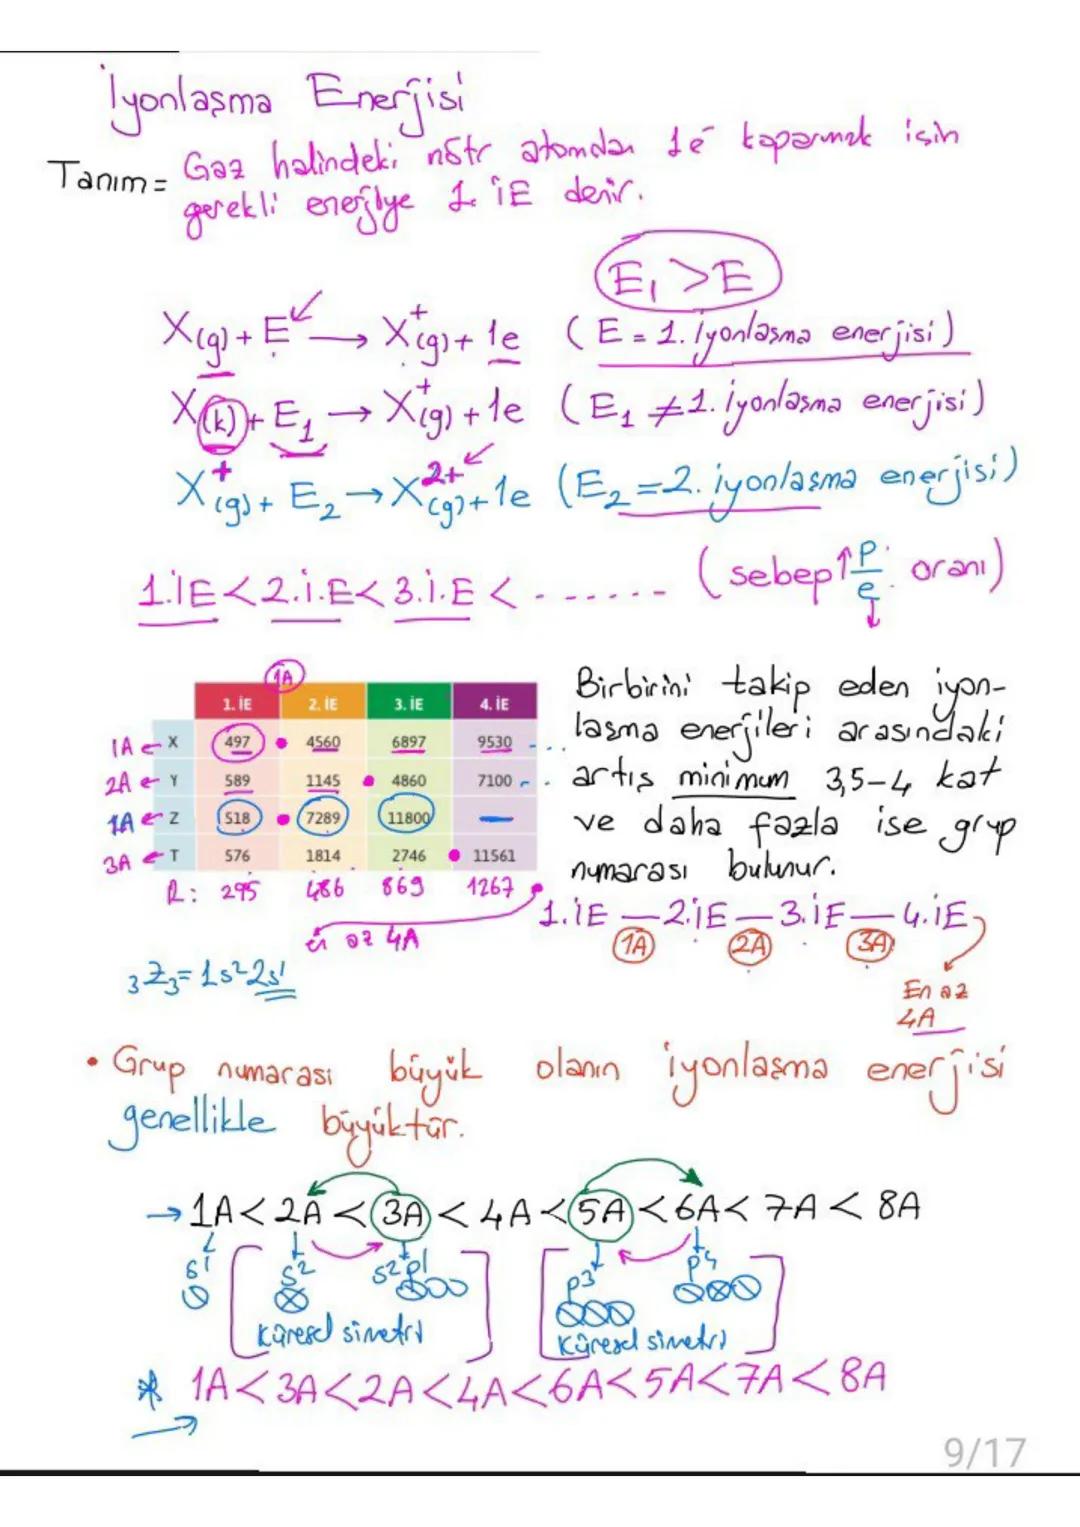 İyonlaşma Enerjisi
Tanım = Gaz halindeki nötr atomdan 1e⁻ koparmak için
gerekli enerjiye 1. İE denir.
E₁ > E
X(g) + E → X⁺(g) + 1e (E = 1. iyonlaşma enerjisi)
X(k) + E₁ → X⁺(g) + 1e (E₁ ≠ 1. iyonlaşma enerjisi)
X⁺(g) + E₂ → X²⁺(g) + 1e (E₂ = 2. iyonlaşma enerjisi)
1.İE < 2.İ.E < 3.İ.E < ------ (sebep ↑ p/e ↓ oranı)
1A
1. İE 2. İE 3. İE 4. İE
1A ← X 497 • 4560 6897 9530 - ..
2A ← Y 589 1145 • 4860 7100 - .
1A ← Z 518 • 7289 11800 —
3A ← T 576 1814 2746 • 11561
R: 295 486 869 1267 •
en az 4A
₃Z₃ = 1s² 2s¹
Birbirini takip eden iyon-
laşma enerjileri arasındaki
artış minimum 3,5-4 kat
ve daha fazla ise grup
numarası bulunur.
1.İE — 2.İE — 3.İE — 4.İE
1A 2A 3A
En az
4A
• Grup numarası büyük olanın iyonlaşma enerjisi
genellikle büyüktür.
→ 1A < 2A < 3A < 4A < 5A < 6A < 7A < 8A
s¹ s² s²p¹ p³ p⁴
Küresel simetri Küresel simetri
* 1A < 3A < 2A < 4A < 6A < 5A < 7A < 8A
→
9/17